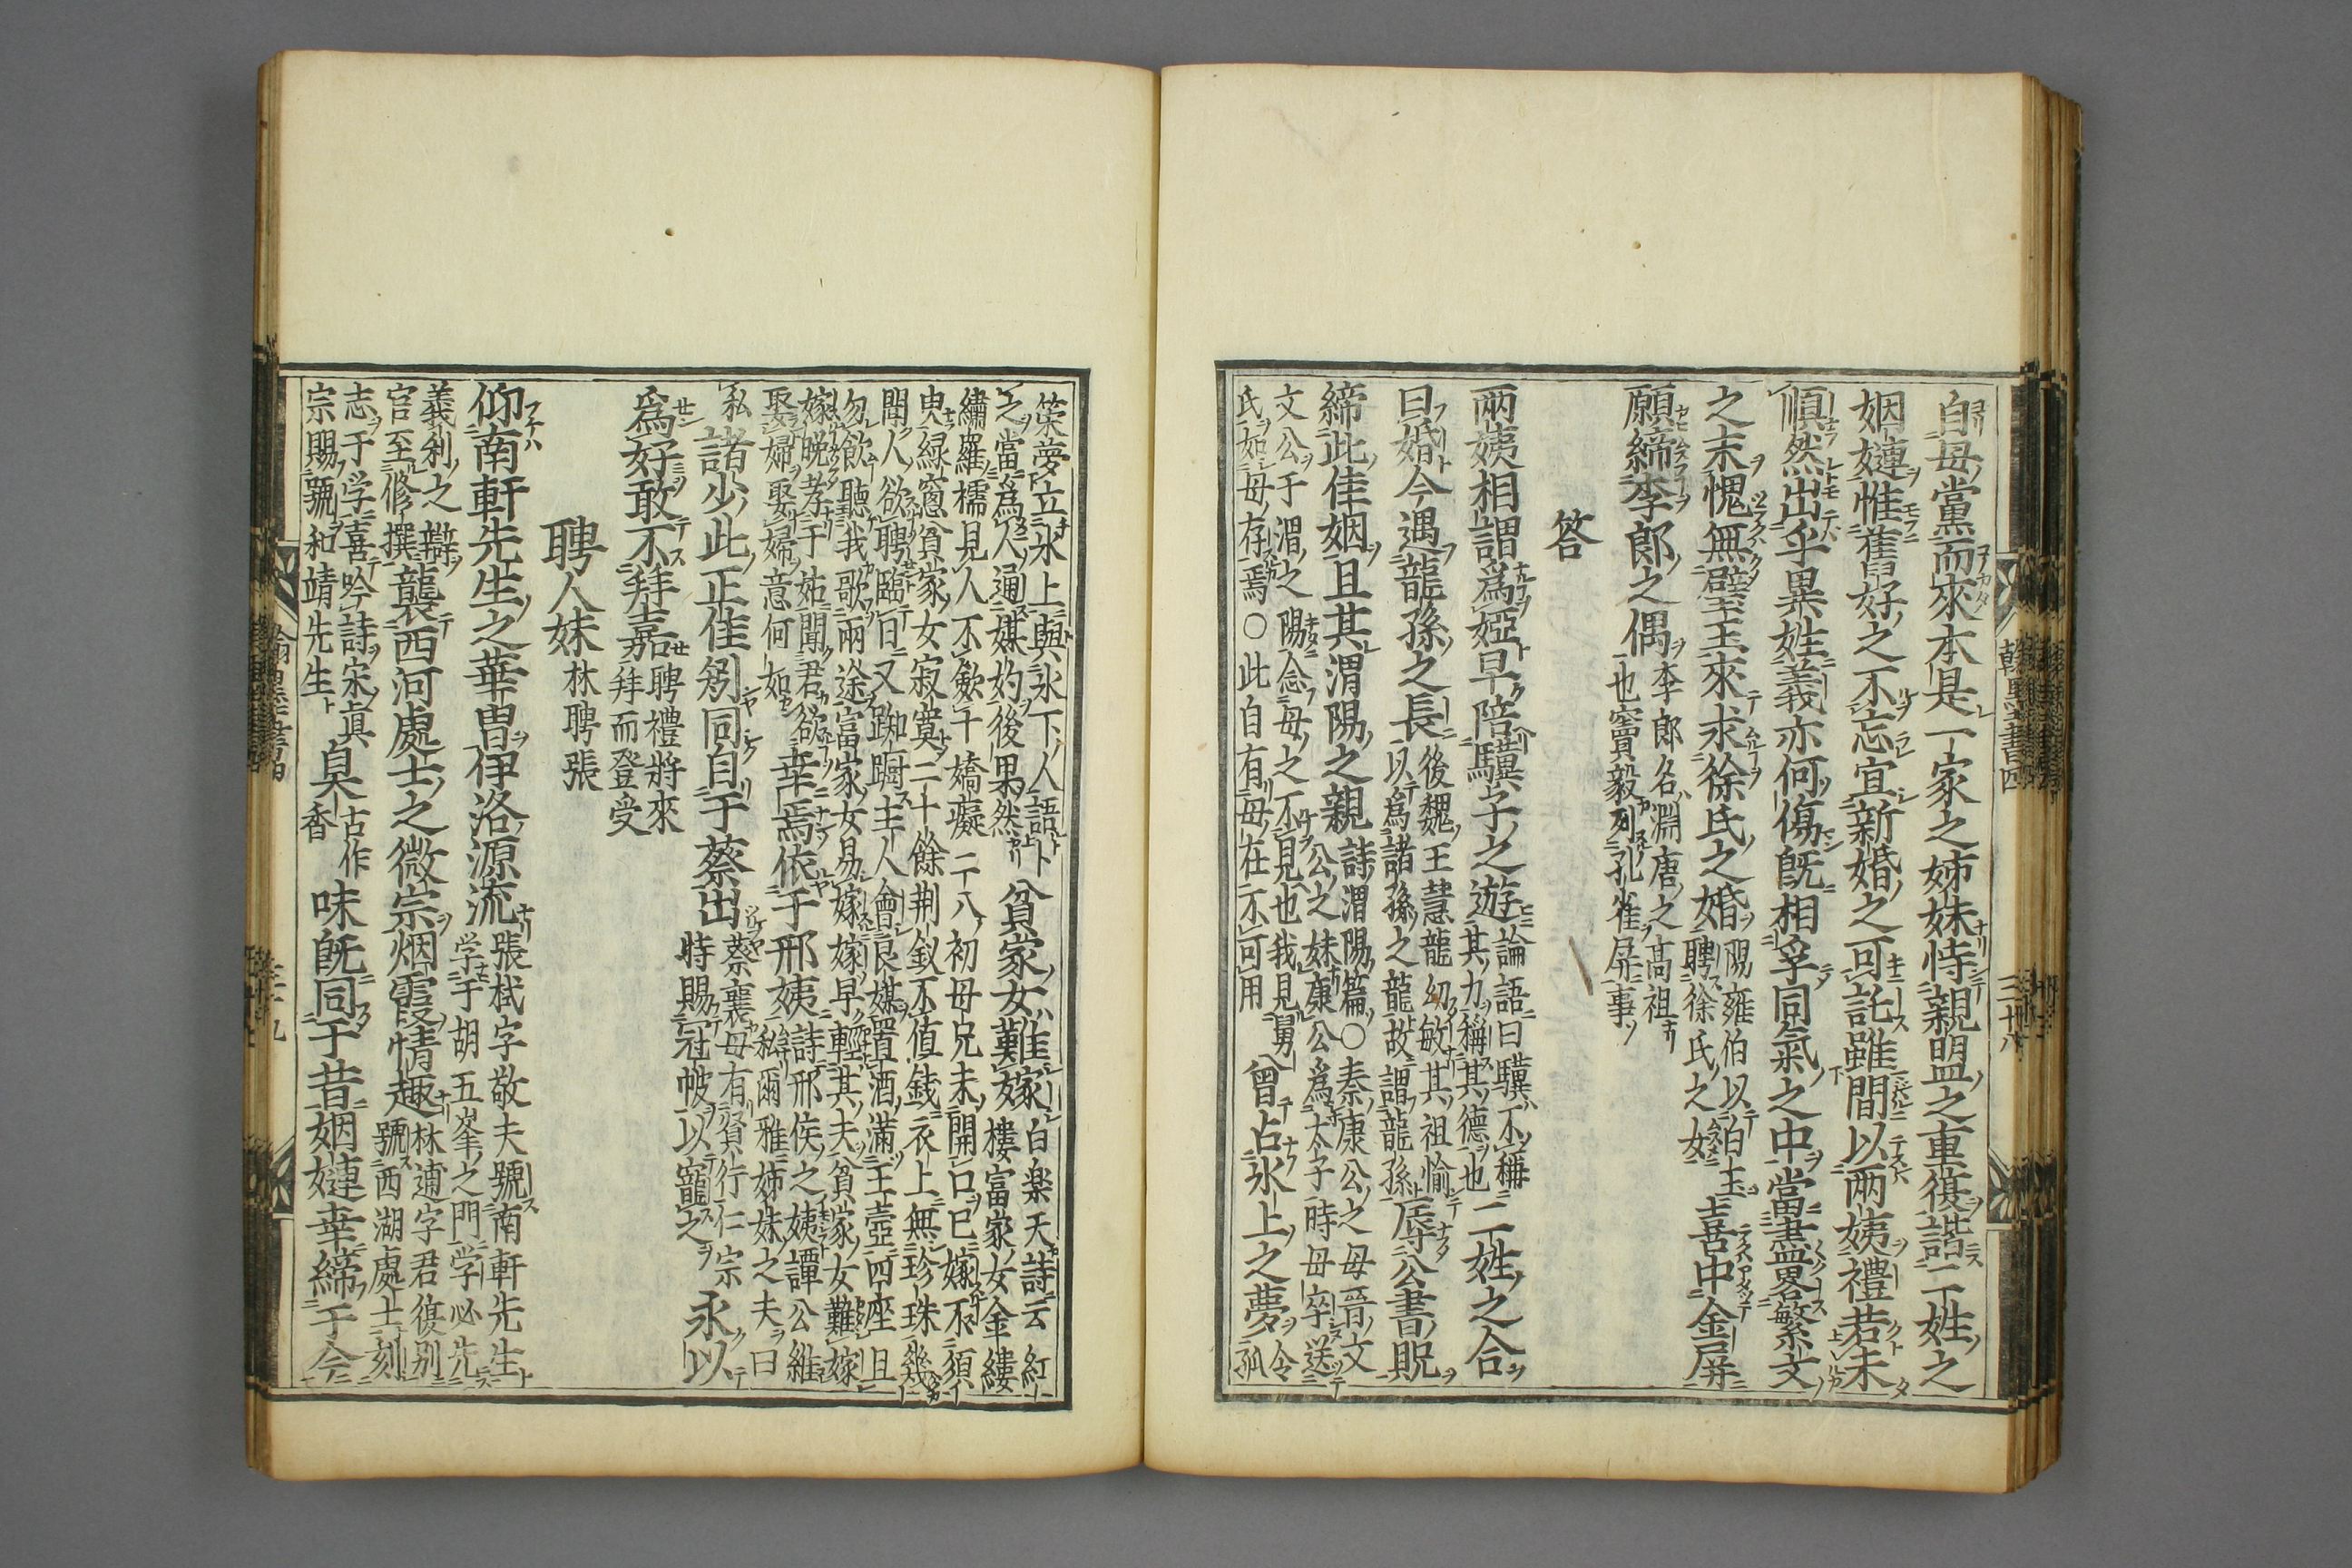 自母黨而來本是一家之姊妹恃親盟之重復諧二姓之
姻嫤惟舊好之不忘宜新婚之可託雖間以兩姨禮若未
順然出乎異姓義亦何傷既相孚同氣之中當盡畧繁文
之末愧無璧玉來求徐氏之婚
陽雍伯以白玉
聘徐氏之女
喜中金屏
願締李郎之偶
李郎名淵唐之髙祖
也竇毅列孔雀屏事
答
兩姨相謂爲婭早陪驥子之遊
論語曰驥不稱
其力稱其德也
二姓之合
曰婚今遇龍孫之長
後魏王慧龍幼敏其祖愉
以爲諸孫之龍故謂龍孫
辱公書貺
締此佳姻且其渭陽之親
詩渭陽篇○秦康公之母晉文
公之妹康公爲太子時母卒送
文公于渭之陽念母之不見也我見舅
氏如母存焉○此自有母在不可用
曾占氷上之夢
令
孤
䇿夢立氷上與氷下人語卜
之當爲人通媒妁後果然
貧家女難嫁
白楽天詩云紅
樓富家女金縷
繡羅襦見人不斂手嬌癡二八初母兄未開口已嫁不須
臾緑窓貧家女寂寞二十餘荆釵不值銭衣上無珍珠幾
聞人欲聘臨日又踟蹰主人會良媒置酒滿玉壺四座且
勿飲聽我歌兩途富家女易嫁嫁早輕其夫貧家女難嫁
嫁晩孝于姑聞君欲
娶婦娶婦意何如
幸焉依于邢姨
詩邢侯之姨譚公維
私爾雅姊妹之夫曰
私
諸少此正佳矧同自于蔡出
蔡襄母有賢行仁宗
時賜冠帔以寵之
永以
爲好敢不拜嘉
聘禮將來
拜而登受
聘人妹
林聘張
仰南軒先生之華胄伊洛源流
張栻字敬夫號南軒先生
学于胡五峯之門学必先
義利之辯
官至修撰
襲西河處士之微宗烟霞情趣
林逋字君復别
號西湖處士刻
志于学喜吟詩宋眞
宗賜號和靖先生
臭
古作
香
味既同于昔姻嫤幸締于今
翰墨書四
三十八